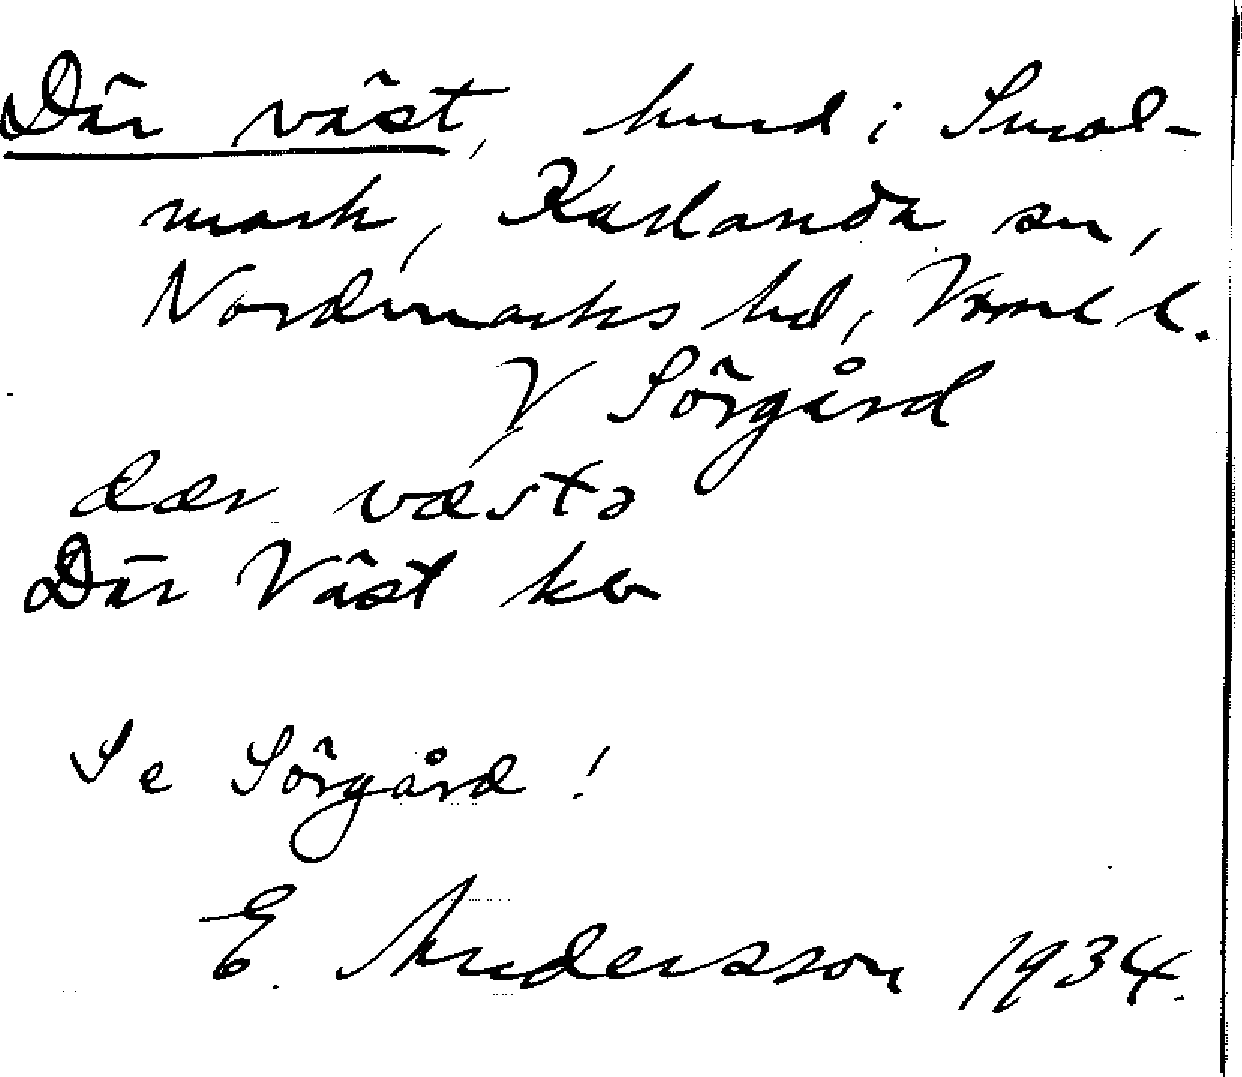 Där väst, hmd i Smol-
mark, Karlanda sn,
Nordmarks hd, Värml l.
V Sörgård
dær væsta
Där Väst ko
Se Sörgård!
E. Andersson 1934.